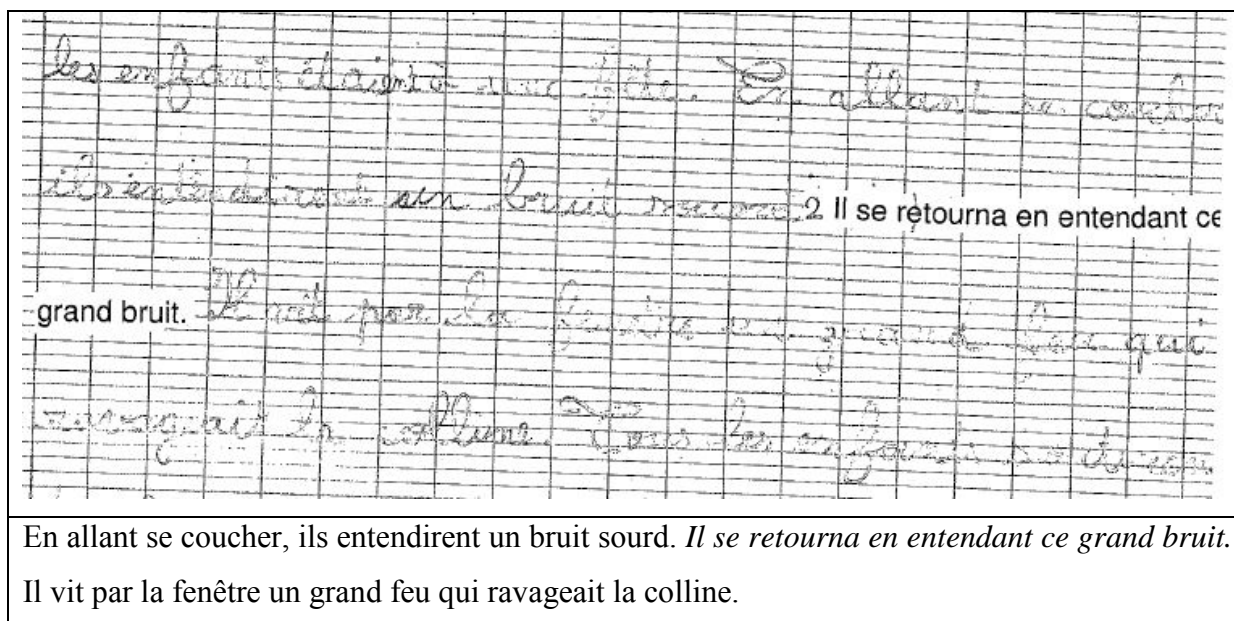 les enfants étaient à une fête. En allant se coucher
ils entendirent un bruit sourd 2 Il se retourna en entendant ce
grand bruit. Il vit par la fenêtre un grand feu qui
ravagait la colline. Tous les enfants
En allant se coucher, ils entendirent un bruit sourd. Il se retourna en entendant ce grand bruit.
Il vit par la fenêtre un grand feu qui ravageait la colline.